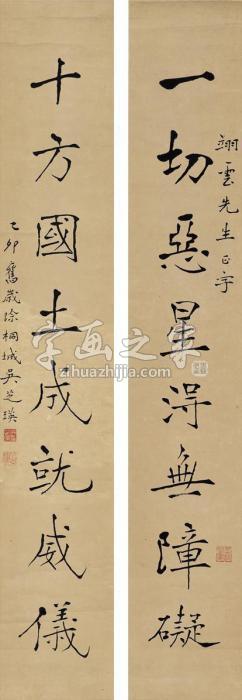 翊雲先生正字
一切惡星得無障礙
十方國土成就威儀
乙卯舊歲除桐城吳芝瑛
字画之家
zihuazhijia.com